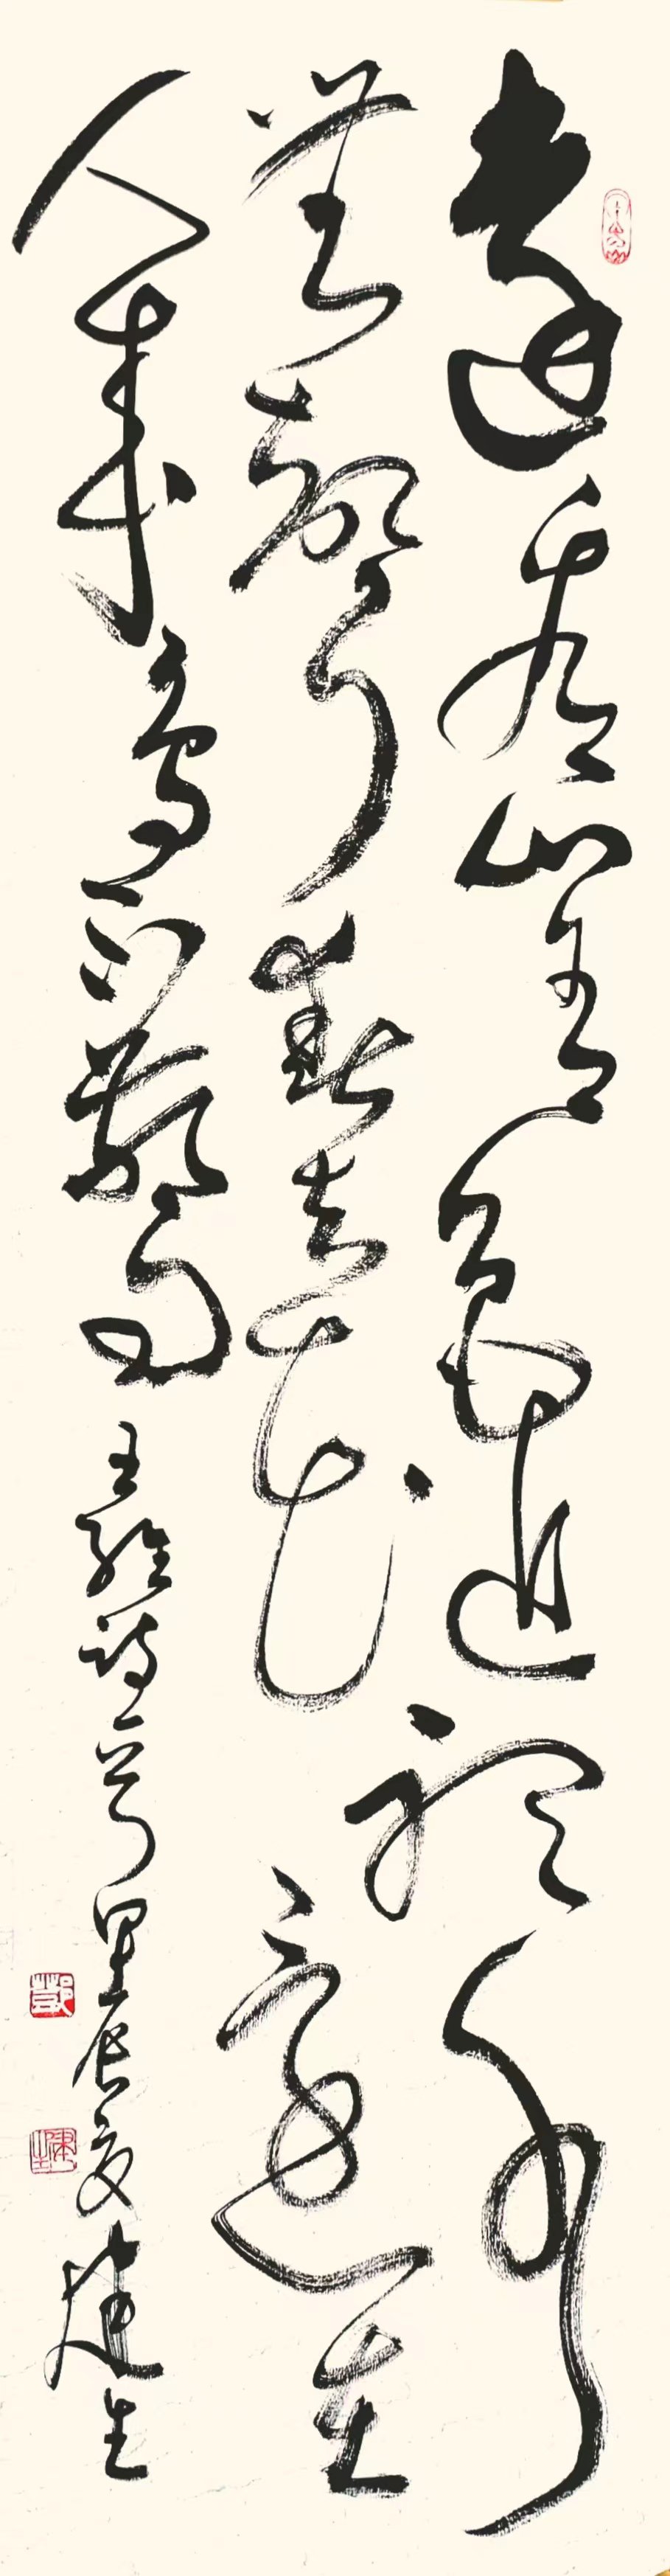 遠看山有色近聽水
無聲春去花還在
人來鳥不驚
王維詩 甲辰夏建生
鄧
建生